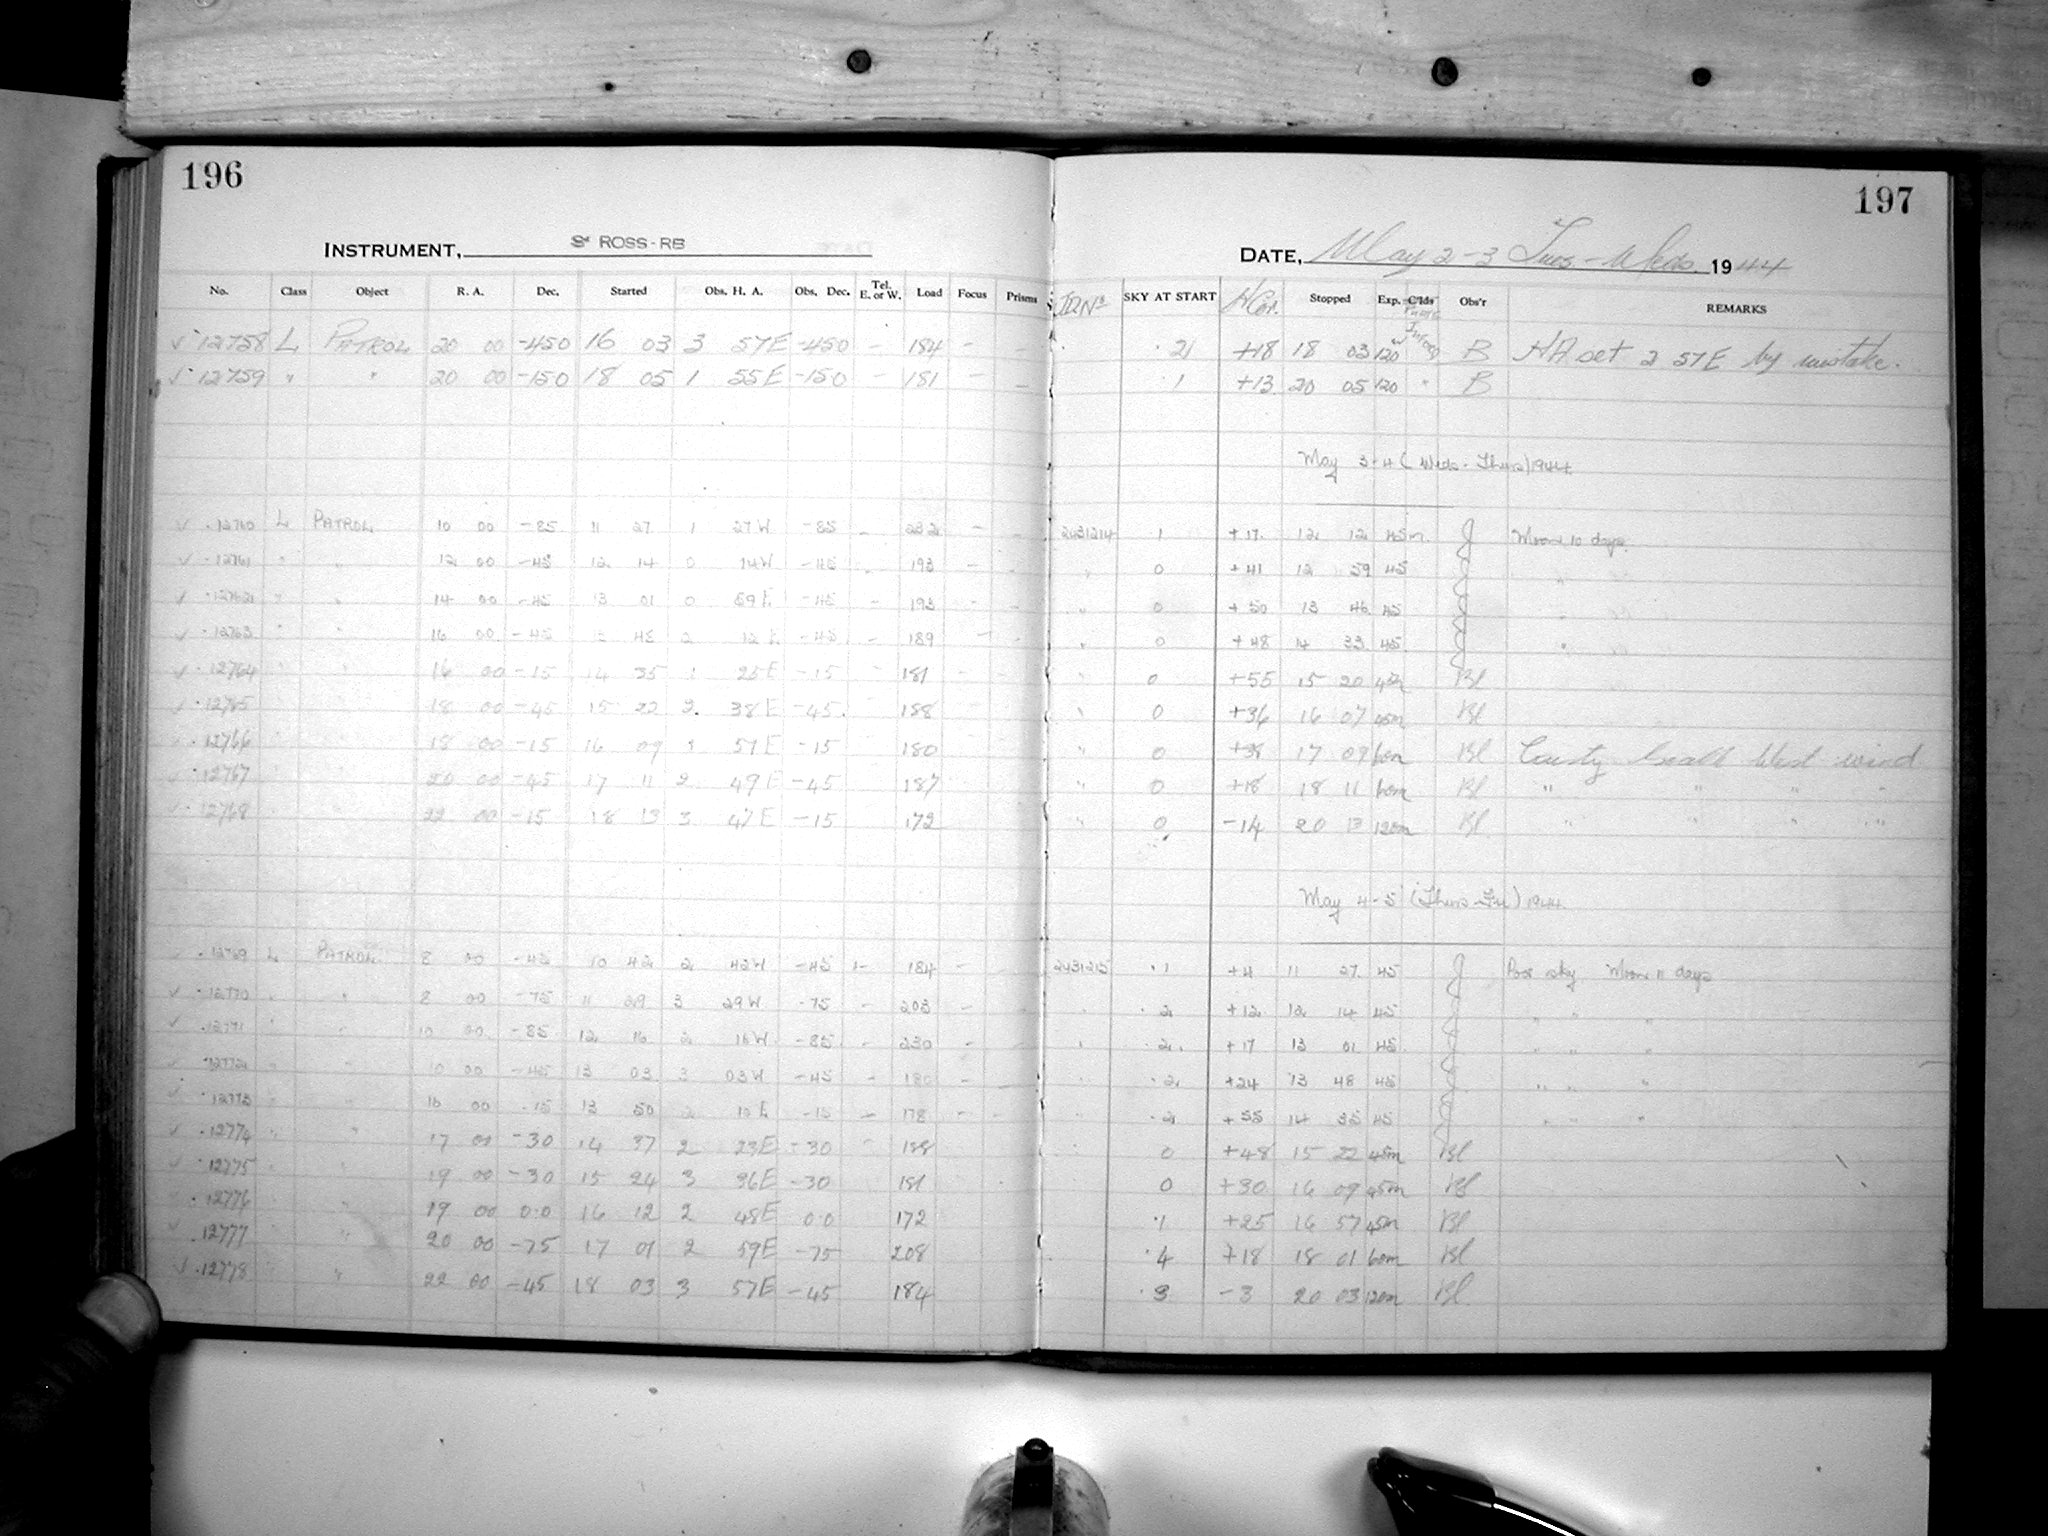 196
197
INSTRUMENT, ROSS-RB
DATE, May 2-3 Tues.-Weds. 1944
No. Class Object R. A. Dec. Started Obs. H. A. Obs. Dec. Tel. E. or W. Load Focus Prisms SKY AT START Stopped Exp. Obs'r REMARKS
12758 L PATROL 20 00 -450 16 03 3 57E -450 - 184 - - +18 18 03 120 B HA set 2 57E by mistake.
12759 " " 20 00 -150 18 05 1 55E -150 - 181 - - 1 +13 20 05 120 " B
May 3-4 (Weds-Thurs) 1944
12760 L PATROL 10 00 -85 11 27 1 27W -85 - 232 - - 2431214 1 +17 12 12 45m J Moon 10 days.
12761 " " 12 00 -45 12 14 0 14W -45 - 193 - - " 0 +41 12 59 45 J "
12762 " " 14 00 -45 13 01 0 59E -45 - 193 - - " 0 +50 13 46 45 J "
12763 " " 16 00 -45 13 48 2 12E -45 - 189 - - " 0 +48 14 33 45 J "
12764 " " 16 00 -15 14 35 1 25E -15 181 - - " 0 +55 15 20 45m Bl
12765 18 00 -45 15 22 2 38E -45 188 " 0 +36 16 07 45m Bl
12766 18 00 -15 16 09 57E -15 180 " 0 17 09 60m Bl West wind
12767 20 00 -45 17 11 2 49E -45 187 " 0 +18 18 11 60m Bl " " " "
12768 22 00 -15 18 13 3 47E -15 172 " 0 -14 20 13 120m Bl " " " "
May 4-5 (Thurs-Fri) 1944
12769 L PATROL 8 00 -45 10 42 2 42W -45 - 184 - 2431215 .1 +4 11 27 45 J Poor sky Moon 11 days
12770 " " 8 00 -75 11 29 3 29W -75 - 203 - .2 +12 12 14 45 J " " "
12771 " " 10 00 -85 12 16 2 16W -85 - 230 - - .2 +17 13 01 45 J " " "
12772 " " 10 00 -45 13 03 3 03W -45 - 180 - - .2 +24 13 48 45 J " " "
12773 " " 16 00 -15 13 50 2 10E -15 - 178 - - .2 +55 14 35 45 J " " "
12774 " " 17 00 -30 14 37 2 23E -30 188 0 +48 15 22 45m Bl
12775 " " 19 00 -30 15 24 3 36E -30 181 0 +30 16 09 45m Bl
12776 " 19 00 0.0 16 12 2 48E 0.0 172 .1 +25 16 57 45m Bl
12777 " 20 00 -75 17 01 2 59E -75 208 .4 +18 18 01 60m Bl
12778 " " 22 00 -45 18 03 3 57E -45 184 .3 -3 20 03 120m Bl